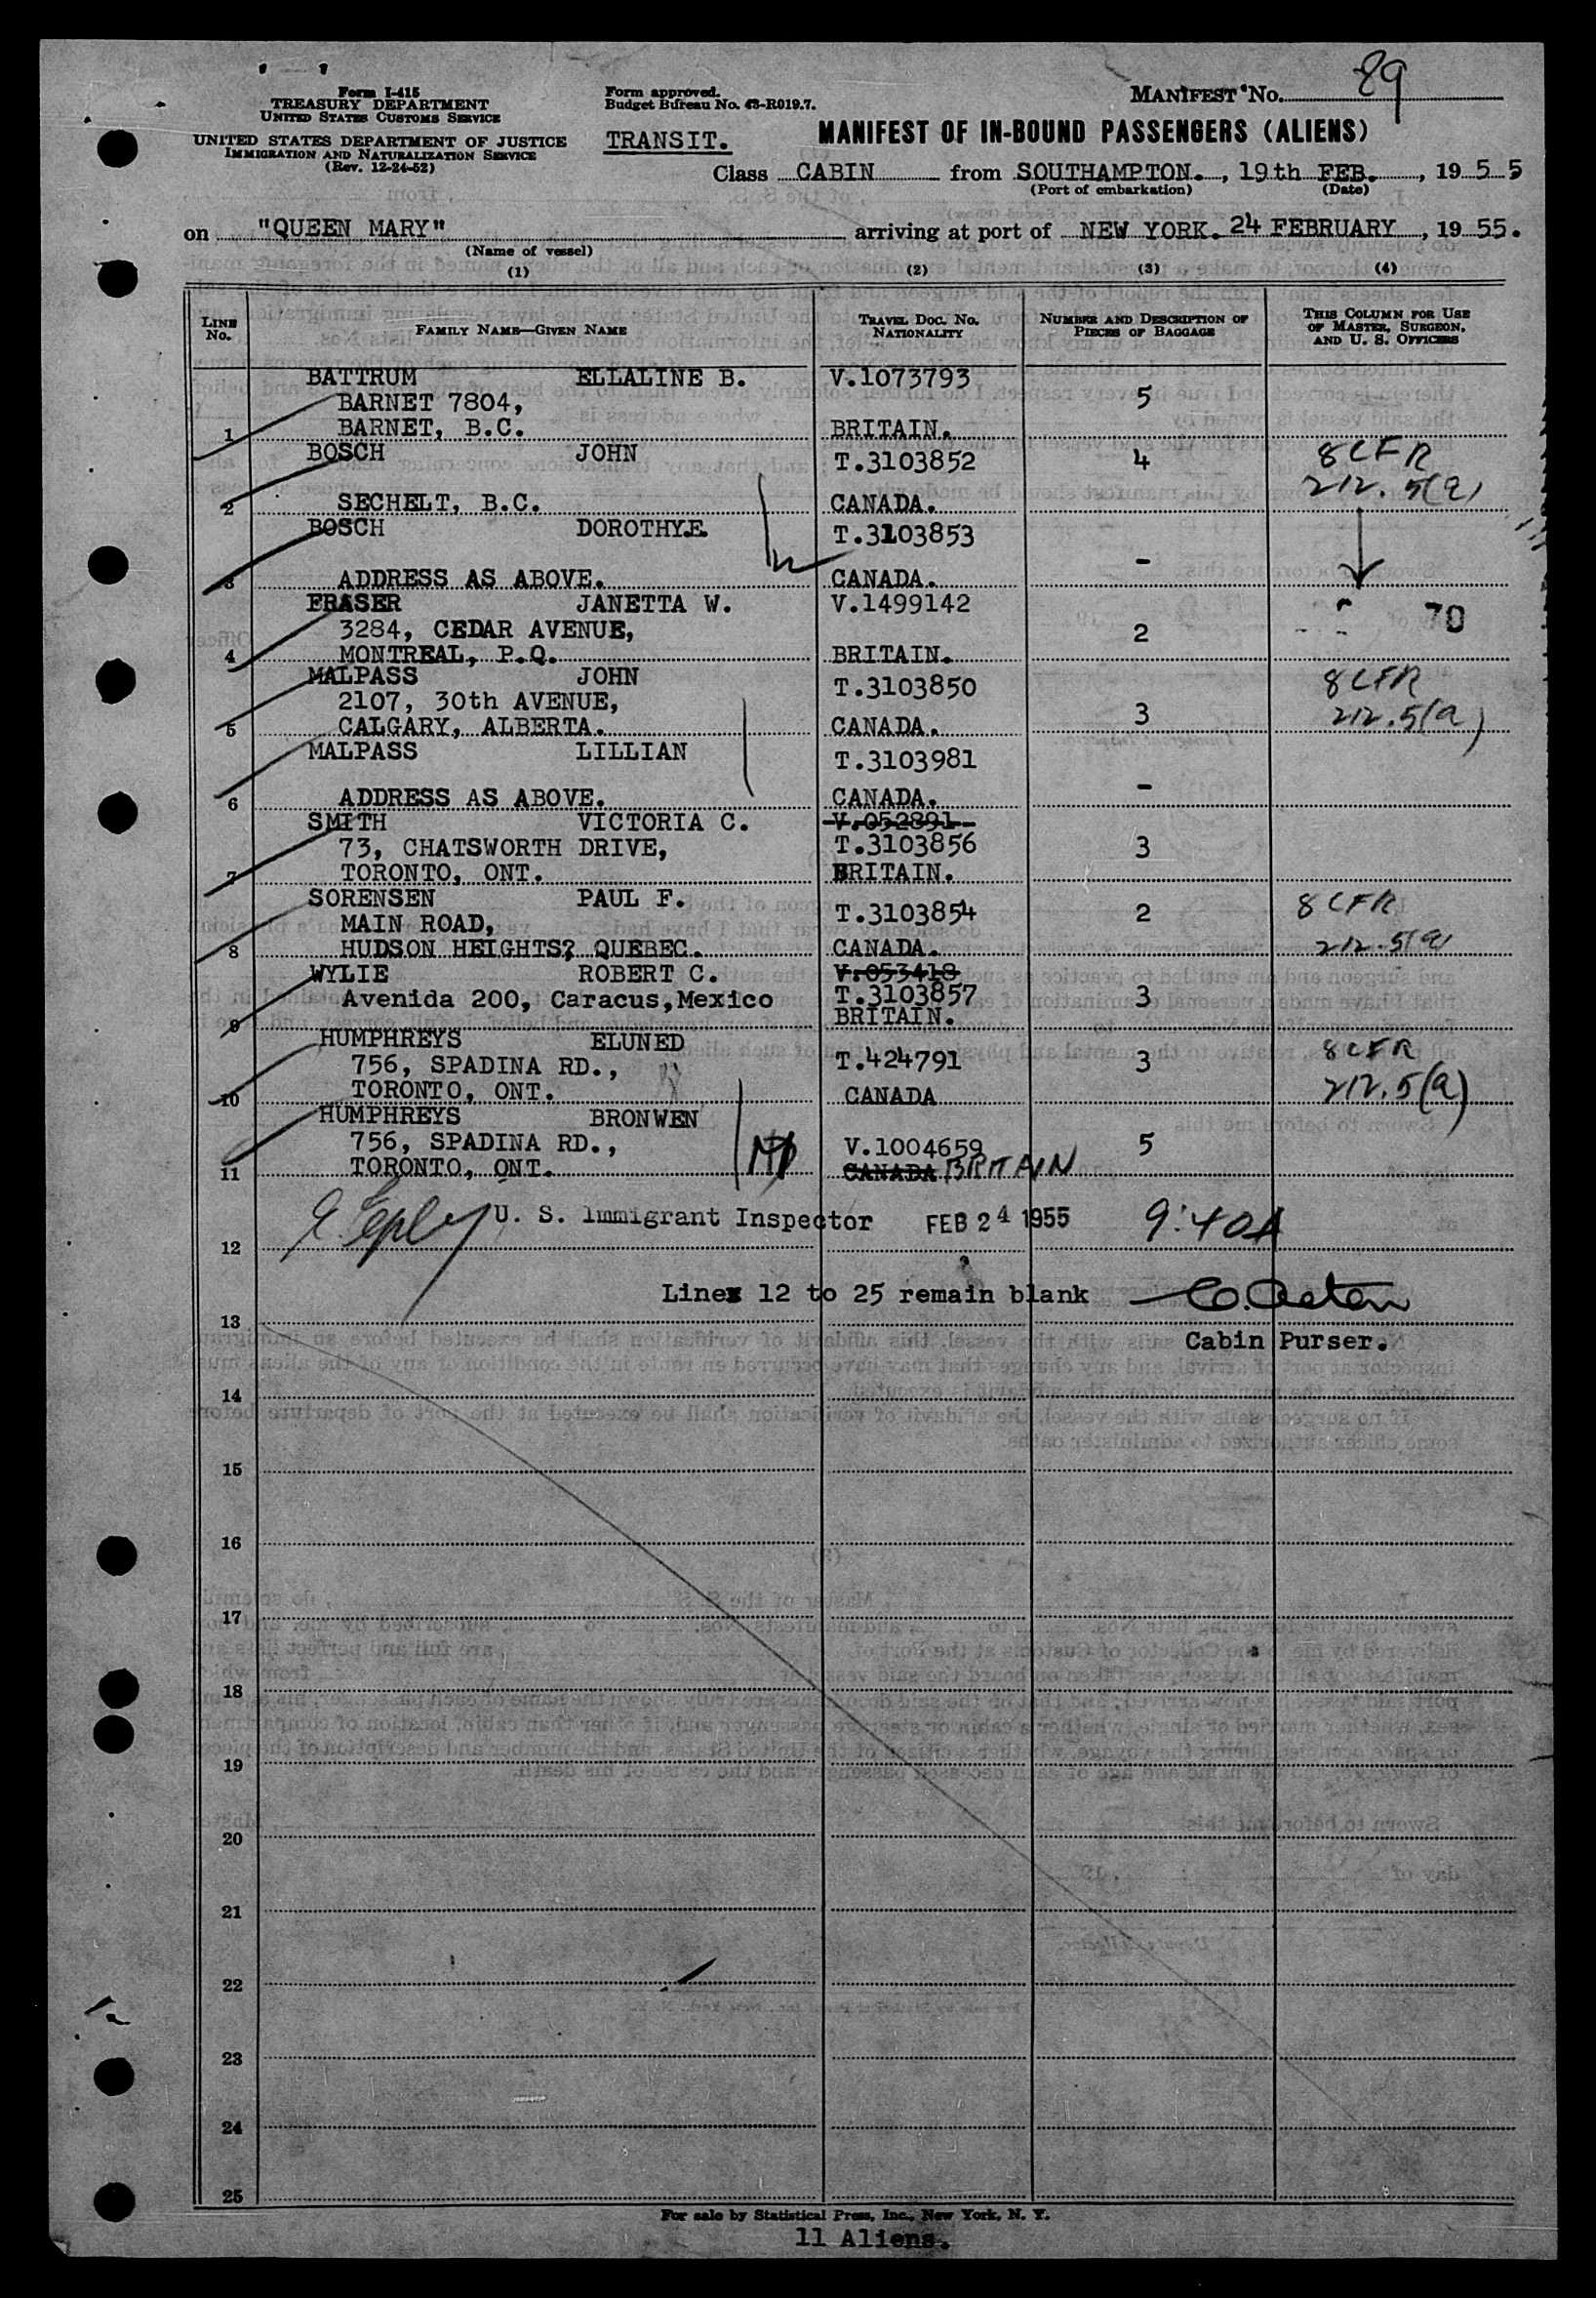 89
Form I-415
TREASURY DEPARTMENT
UNITED STATES CUSTOMS SERVICE
UNITED STATES DEPARTMENT OF JUSTICE
IMMIGRATION AND NATURALIZATION SERVICE
(Rev. 12-24-52)
Form approved.
Budget Bureau No. 43-R019.7.
TRANSIT.
MANIFEST No.
MANIFEST OF IN-BOUND PASSENGERS (ALIENS)
Class CABIN from SOUTHAMPTON. , 19th FEB. , 19 5 5
(Port of embarkation) (Date)
on "QUEEN MARY" arriving at port of NEW YORK. 24 FEBRUARY , 19 55.
(Name of vessel)
(1) (2) (3) (4)
LINE No. FAMILY NAME—GIVEN NAME TRAVEL DOC. No. NATIONALITY NUMBER AND DESCRIPTION OF PIECES OF BAGGAGE THIS COLUMN FOR USE OF MASTER, SURGEON, AND U. S. OFFICERS
BATTRUM ELLALINE B. V.1073793
BARNET 7804, 5
1 BARNET, B.C. BRITAIN.
BOSCH JOHN T.3103852 4 8 CFR
212.5(a)
2 SECHELT, B.C. CANADA.
BOSCH DOROTHY.E. T.3103853
-
3 ADDRESS AS ABOVE. CANADA.
FRASER JANETTA W. V.1499142
3284, CEDAR AVENUE, 2 70
4 MONTREAL, P.Q. BRITAIN.
MALPASS JOHN T.3103850 8 CFR
2107, 30th AVENUE, 3 212.5(a)
5 CALGARY, ALBERTA. CANADA.
MALPASS LILLIAN T.3103981
-
6 ADDRESS AS ABOVE. CANADA.
SMITH VICTORIA C. V.052891
73, CHATSWORTH DRIVE, T.3103856 3
7 TORONTO, ONT. BRITAIN.
SORENSEN PAUL F. T.3103854 2 8 CFR
MAIN ROAD,
8 HUDSON HEIGHTS? QUEBEC. CANADA. 212.5(a)
WYLIE ROBERT C. V.053418
Avenida 200, Caracus,Mexico T.3103857 3
9 BRITAIN.
HUMPHREYS ELUNED 8 CFR
756, SPADINA RD., T.424791 3
10 TORONTO, ONT. CANADA 212.5(a)
HUMPHREYS BRONWEN
756, SPADINA RD., V.1004659 5
11 TORONTO, ONT. CANADA BRITAIN
U. S. Immigrant Inspector FEB 24 1955 9:40A
12
Lines 12 to 25 remain blank
13
Cabin Purser.
14
15
16
17
18
19
20
21
22
23
24
25
For sale by Statistical Press, Inc., New York, N. Y.
11 Aliens.